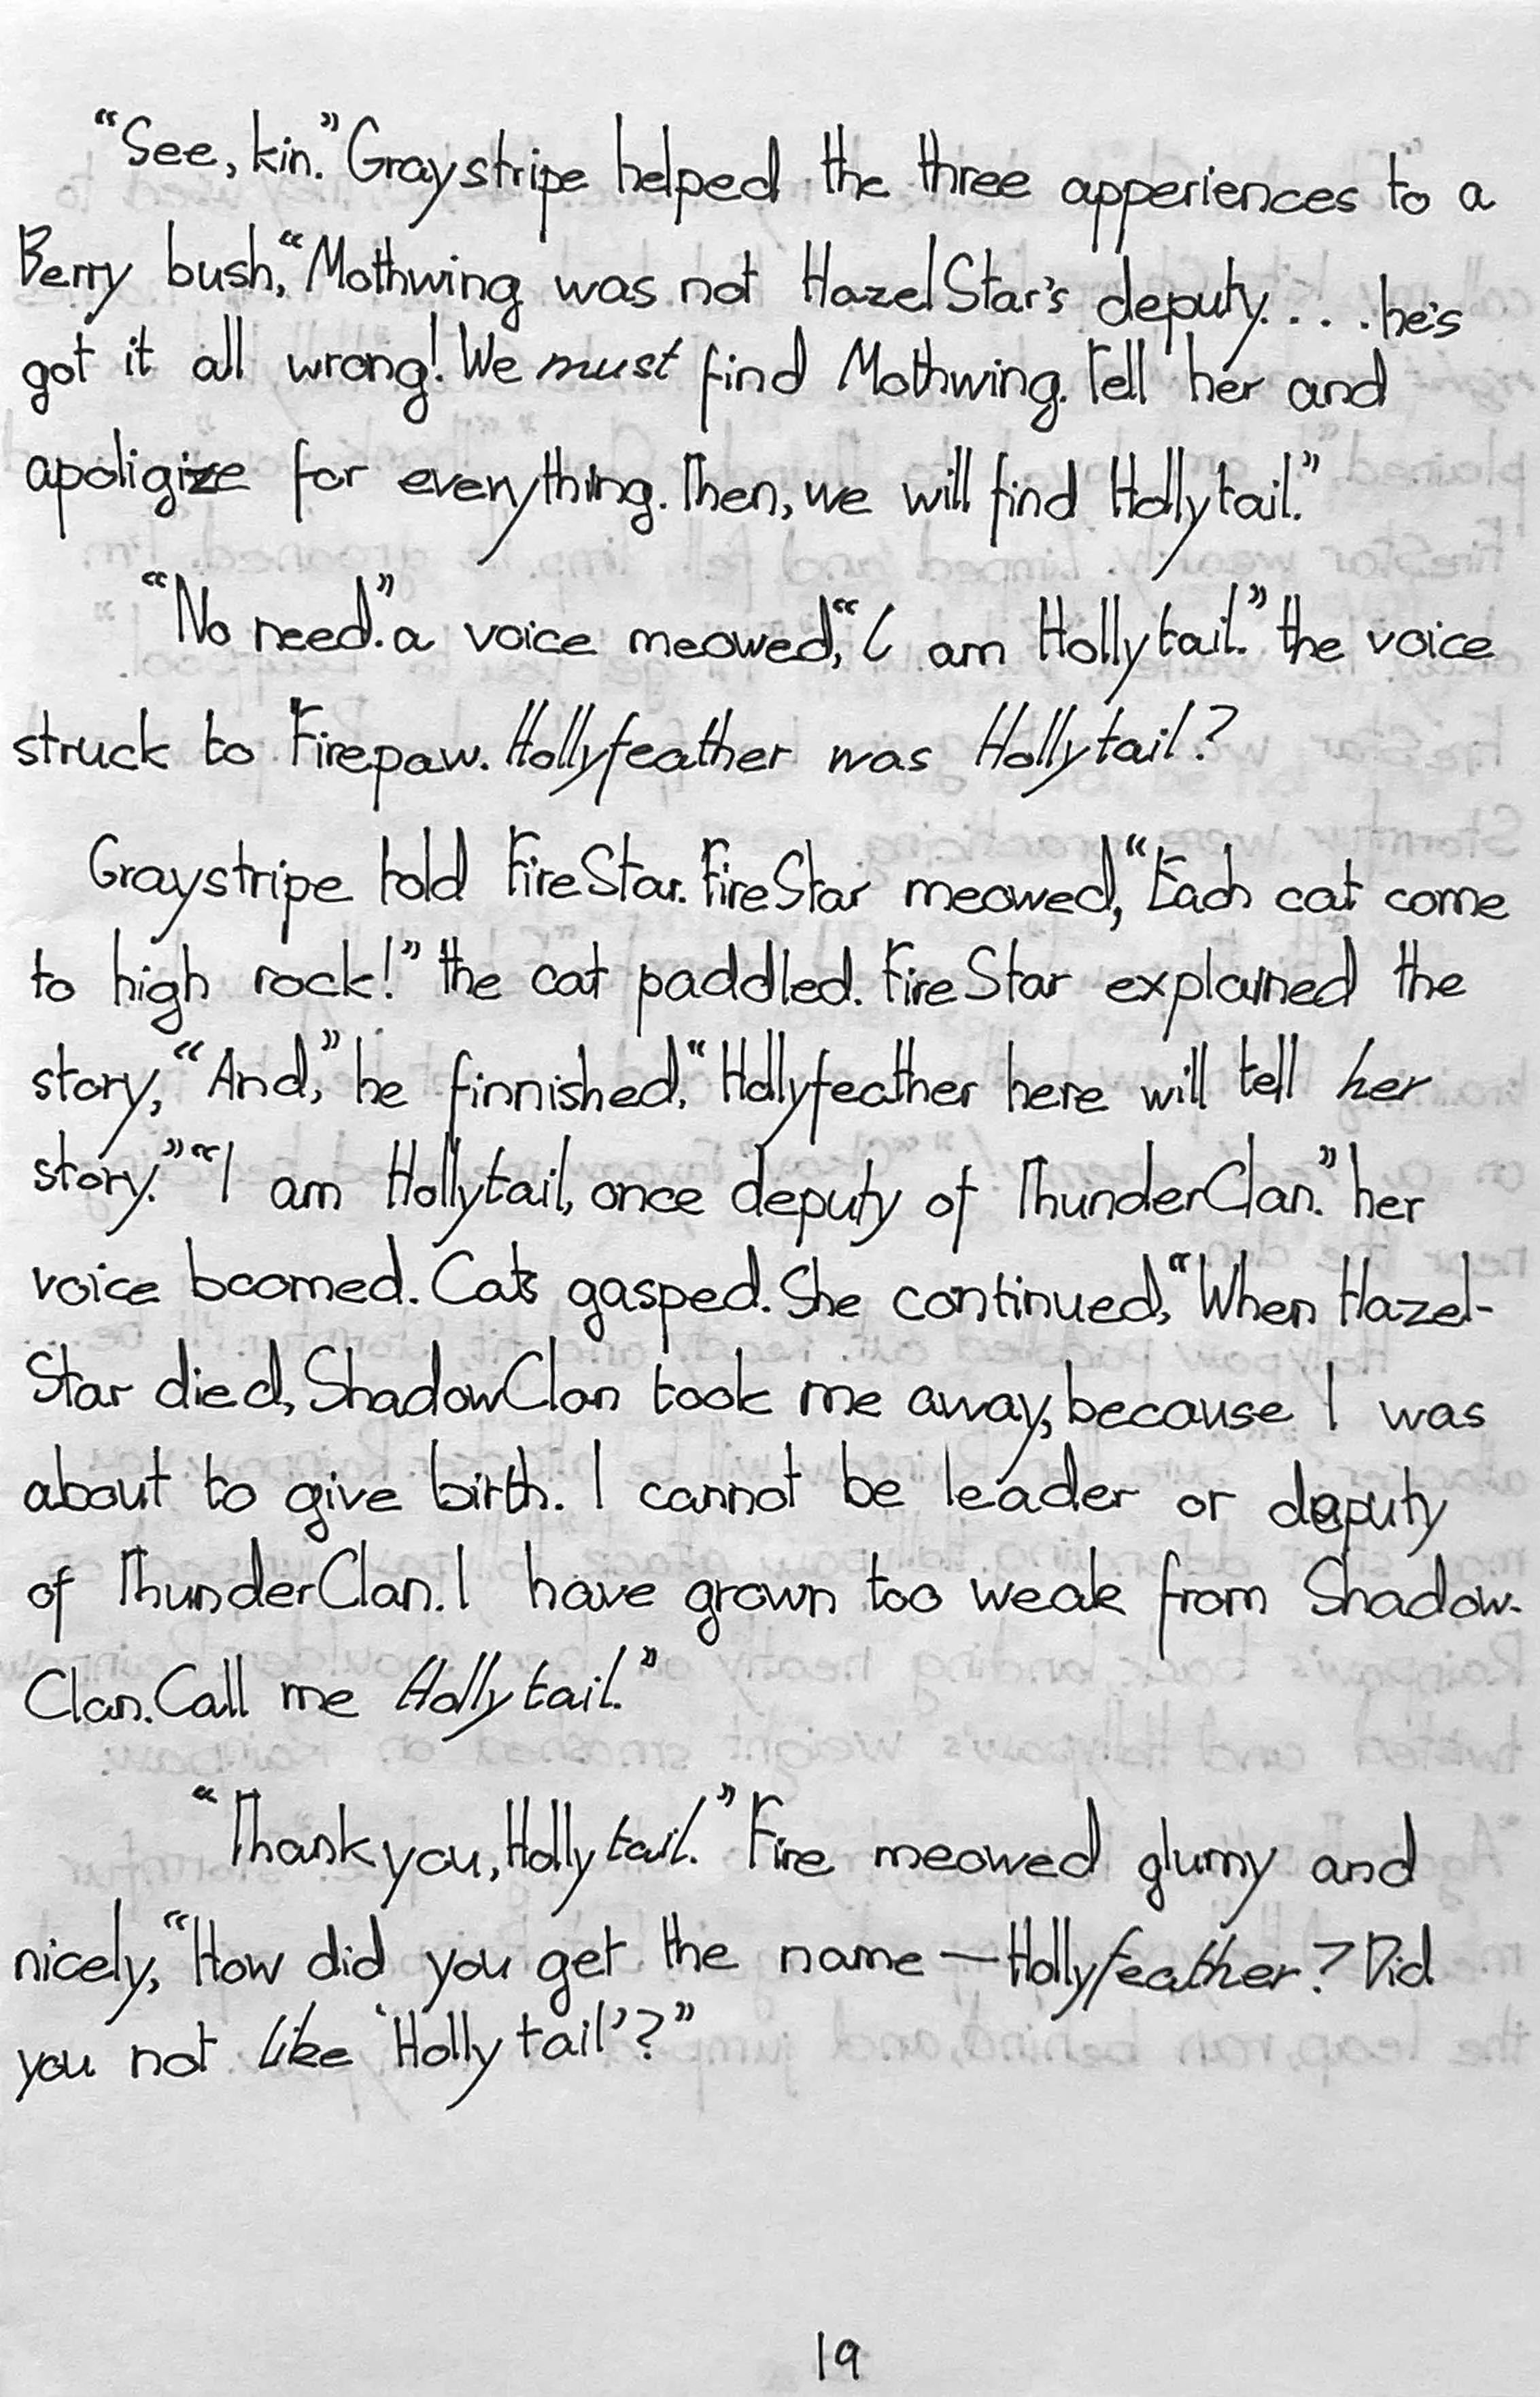 “See, kin.” Graystripe helped the three apperiences to a
Berry bush, “Mothwing was not HazelStar’s deputy. . . . he’s
got it all wrong! We must find Mothwing. Tell her and
apoligize for everything. Then, we will find Hollytail.”
“No need.” a voice meowed, “I am Hollytail.” the voice
struck to Firepaw. Hollyfeather was Hollytail?
Graystripe told FireStar. FireStar meowed, “Each cat come
to high rock!” the cat paddled. FireStar explained the
story, “And,” he finnished, “Hollyfeather here will tell her
story.” “I am Hollytail, once deputy of ThunderClan.” her
voice boomed. Cats gasped. She continued, “When Hazel-
Star died, ShadowClan took me away, because I was
about to give birth. I cannot be leader or deputy
of ThunderClan. I have grown too weak from Shadow-
Clan. Call me Hollytail.”
“Thank you, Hollytail.” Fire meowed glumy and
nicely, “How did you get the name — Hollyfeather? Did
you not like ‘Hollytail’?”
19